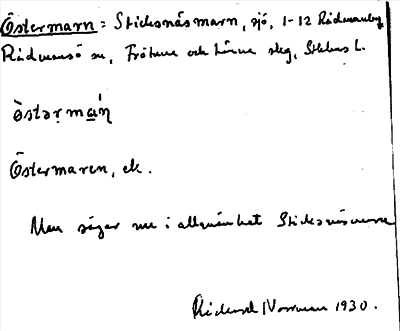 Östermarn = Sticksnäsmarn, sjö, 1-12 Rådmanby
Rådmansö sn, Frötuna och Länna slg, Sthlms l.
òstərmań
Östermaren, ek.
Man säger nu i allmänhet Sticksnäsmarn
1930.